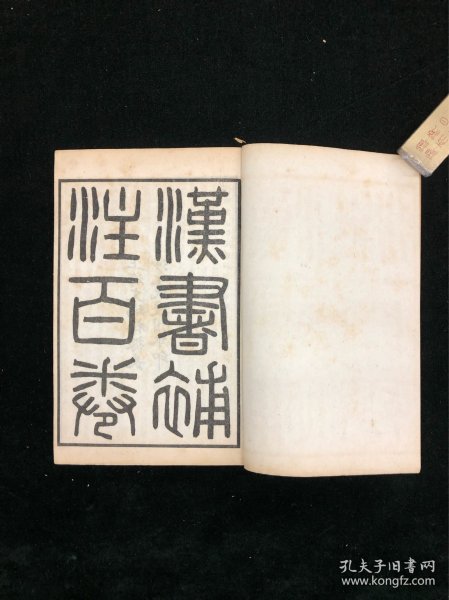 漢書補
注百卷
孔夫子旧书网
www.kongfz.com